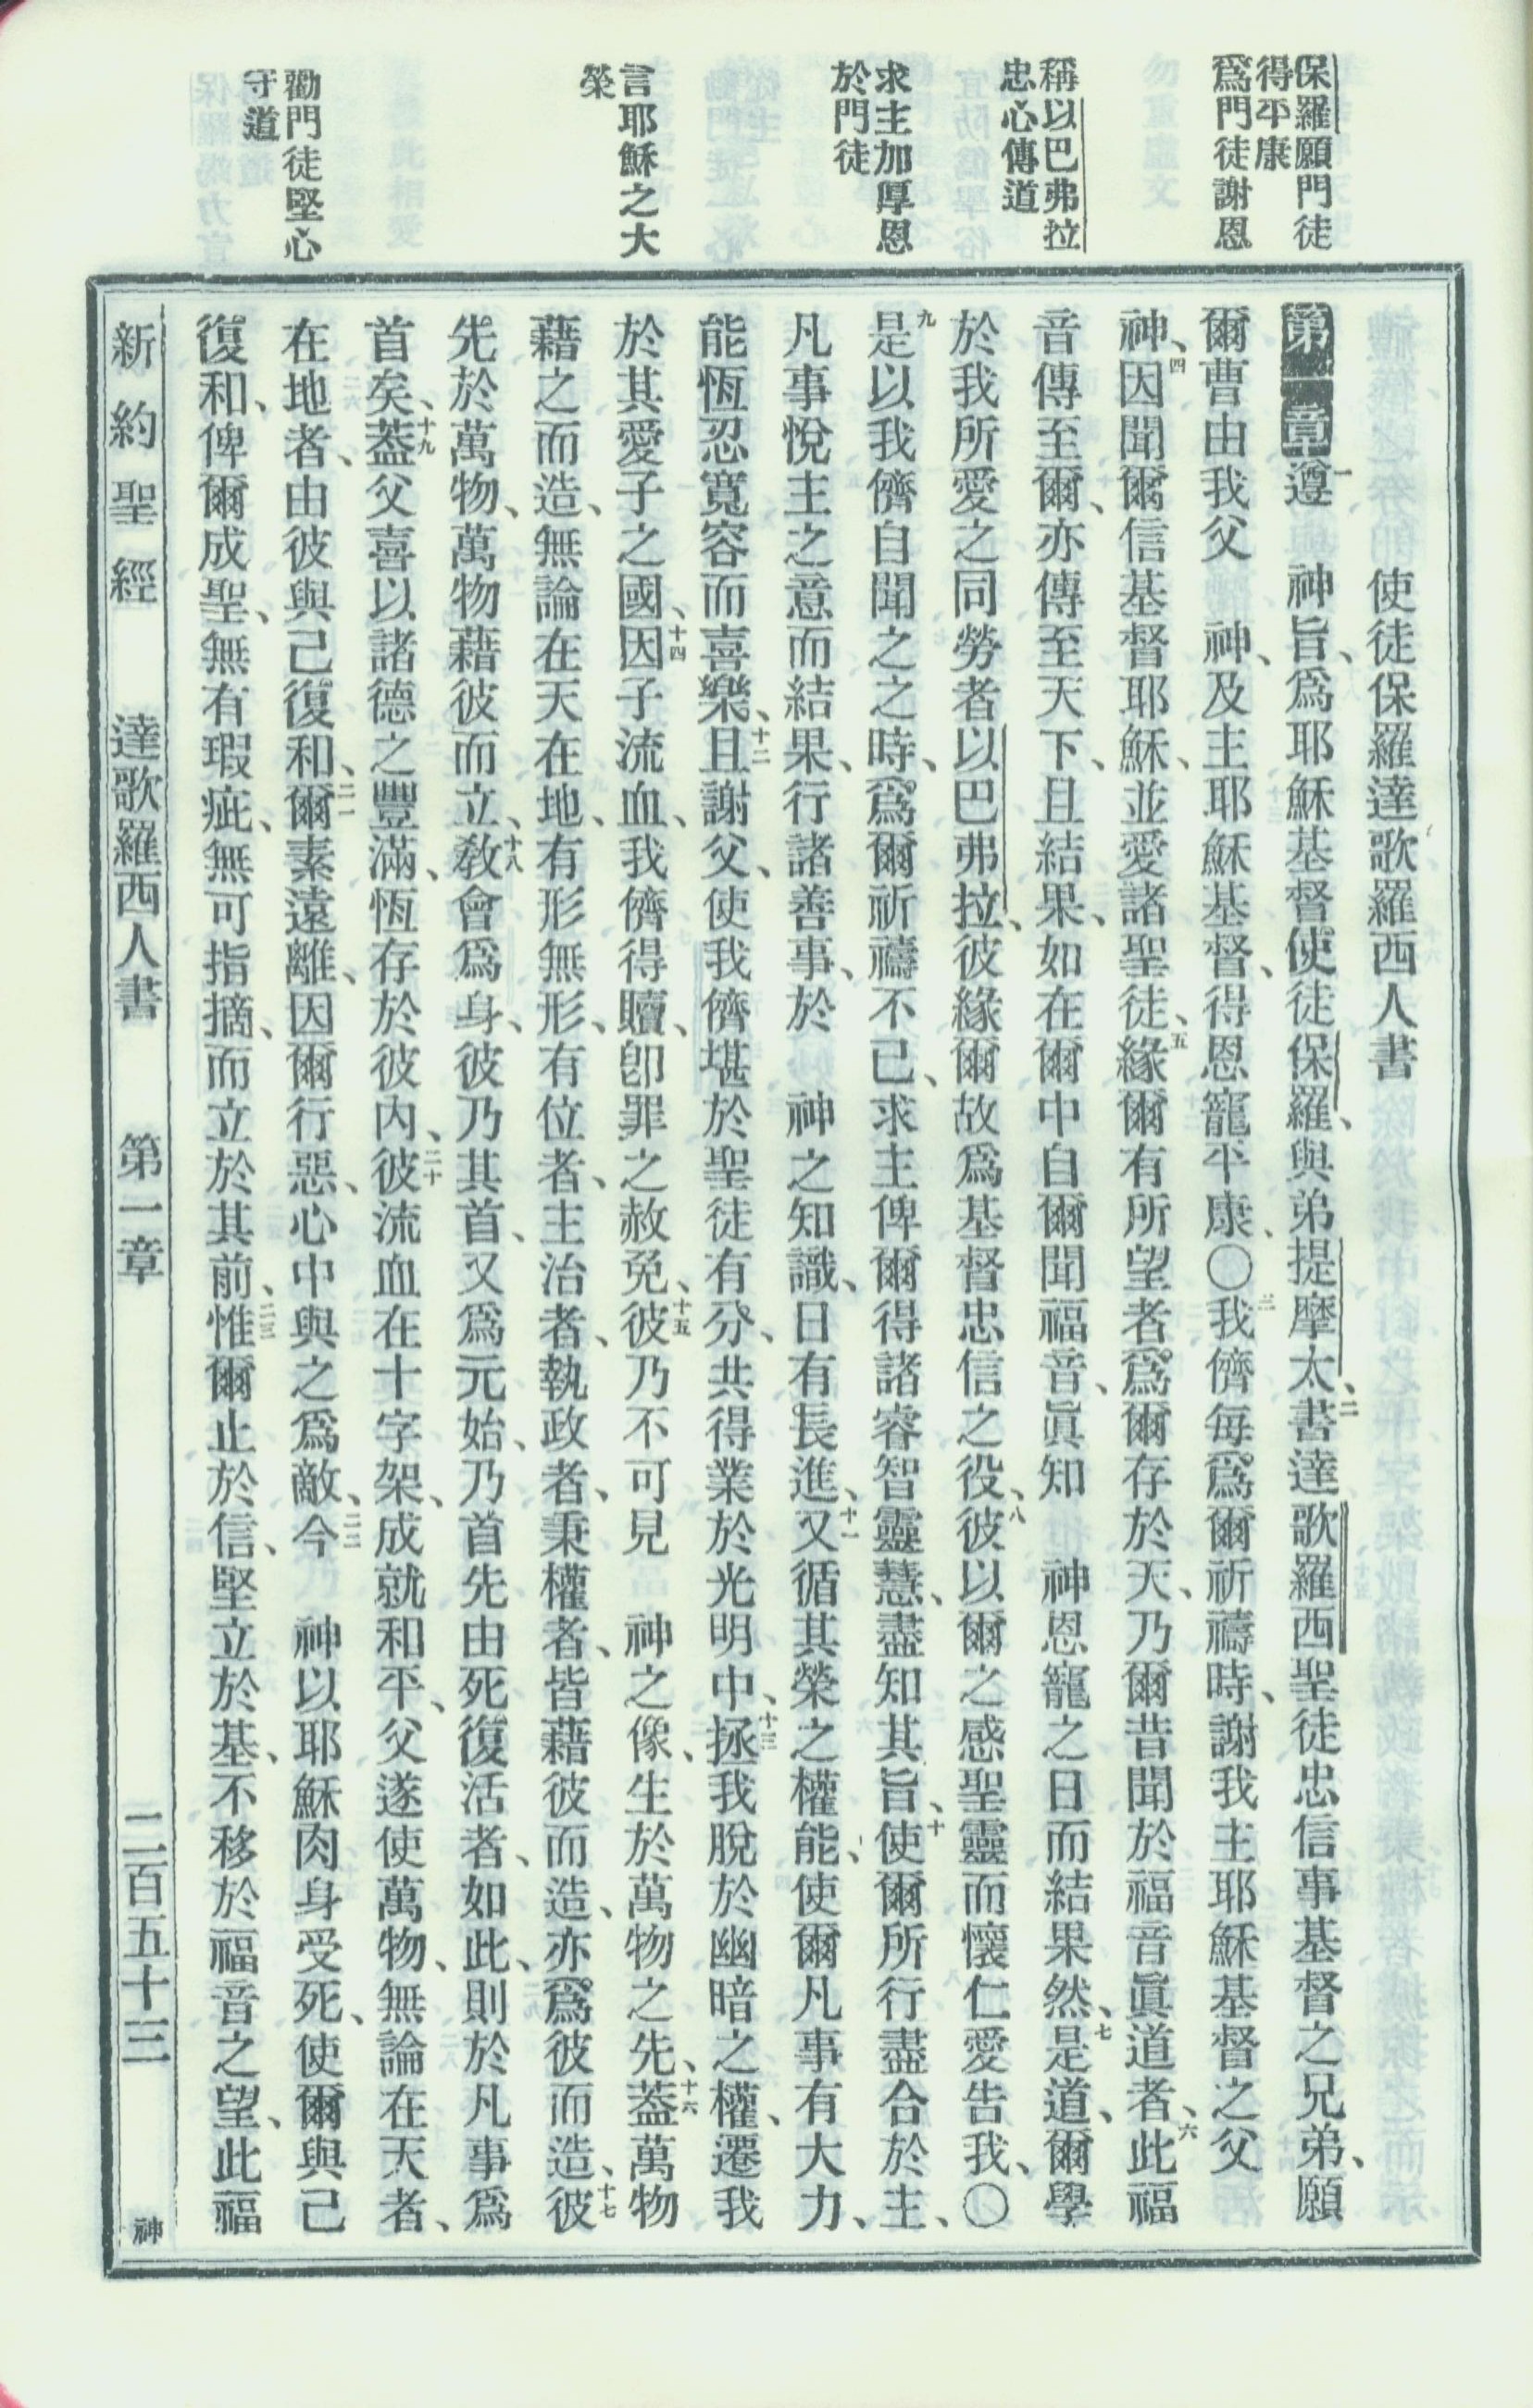 保羅願門徒
得平康
爲門徒謝恩
稱以巴弗拉
忠心傳道
求主加厚恩
於門徒
言耶穌之大
榮
勸門徒堅心
守道
使徒保羅達歌羅西人書
第一章 一遵 神旨、爲耶穌基督使徒保羅、與弟提摩太、二書達歌羅西聖徒忠信事基督之兄弟、願
爾曹由我父 神、及主耶穌基督、得恩寵平康、〇三我儕每爲爾祈禱時、謝我主耶穌基督之父
神、四因聞爾信基督耶穌、並愛諸聖徒、五緣爾有所望者、爲爾存於天、乃爾昔聞於福音眞道者、六此福
音傳至爾、亦傳至天下、且結果、如在爾中自爾聞福音、眞知 神恩寵之日而結果然、七是道、爾學
於我所愛之同勞者以巴弗拉、彼緣爾故爲基督忠信之役、八彼以爾之感聖靈而懷仁愛告我、〇
九是以我儕自聞之之時、爲爾祈禱不已、求主俾爾得諸睿智靈慧、盡知其旨、十使爾所行盡合於主、
凡事悅主之意而結果、行諸善事、於 神之知識、日有長進、十一又循其榮之權能、使爾凡事有大力、
能恆忍寬容而喜樂、十二且謝父、使我儕堪於聖徒有分、共得業於光明中、十三拯我脫於幽暗之權、遷我
於其愛子之國、十四因子流血、我儕得贖、卽罪之赦免、十五彼乃不可見 神之像、生於萬物之先、十六蓋萬物
藉之而造、無論在天在地、有形無形、有位者、主治者、執政者、秉權者、皆藉彼而造、亦爲彼而造、十七彼
先於萬物、萬物藉彼而立、十八教會爲身、彼乃其首、又爲元始、乃首先由死復活者、如此、則於凡事爲
首矣、十九蓋父喜以諸德之豐滿、恆存於彼內、二十彼流血在十字架、成就和平、父遂使萬物、無論在天者、
在地者、由彼與己復和、二一爾素遠離、因爾行惡、心中與之爲敵、二二今 神以耶穌肉身受死、使爾與己
復和、俾爾成聖、無有瑕疵、無可指摘、而立於其前、二三惟爾止於信、堅立於基、不移於福音之望、此福
新約聖經 達歌羅西人書 第一章 二百五十三 神